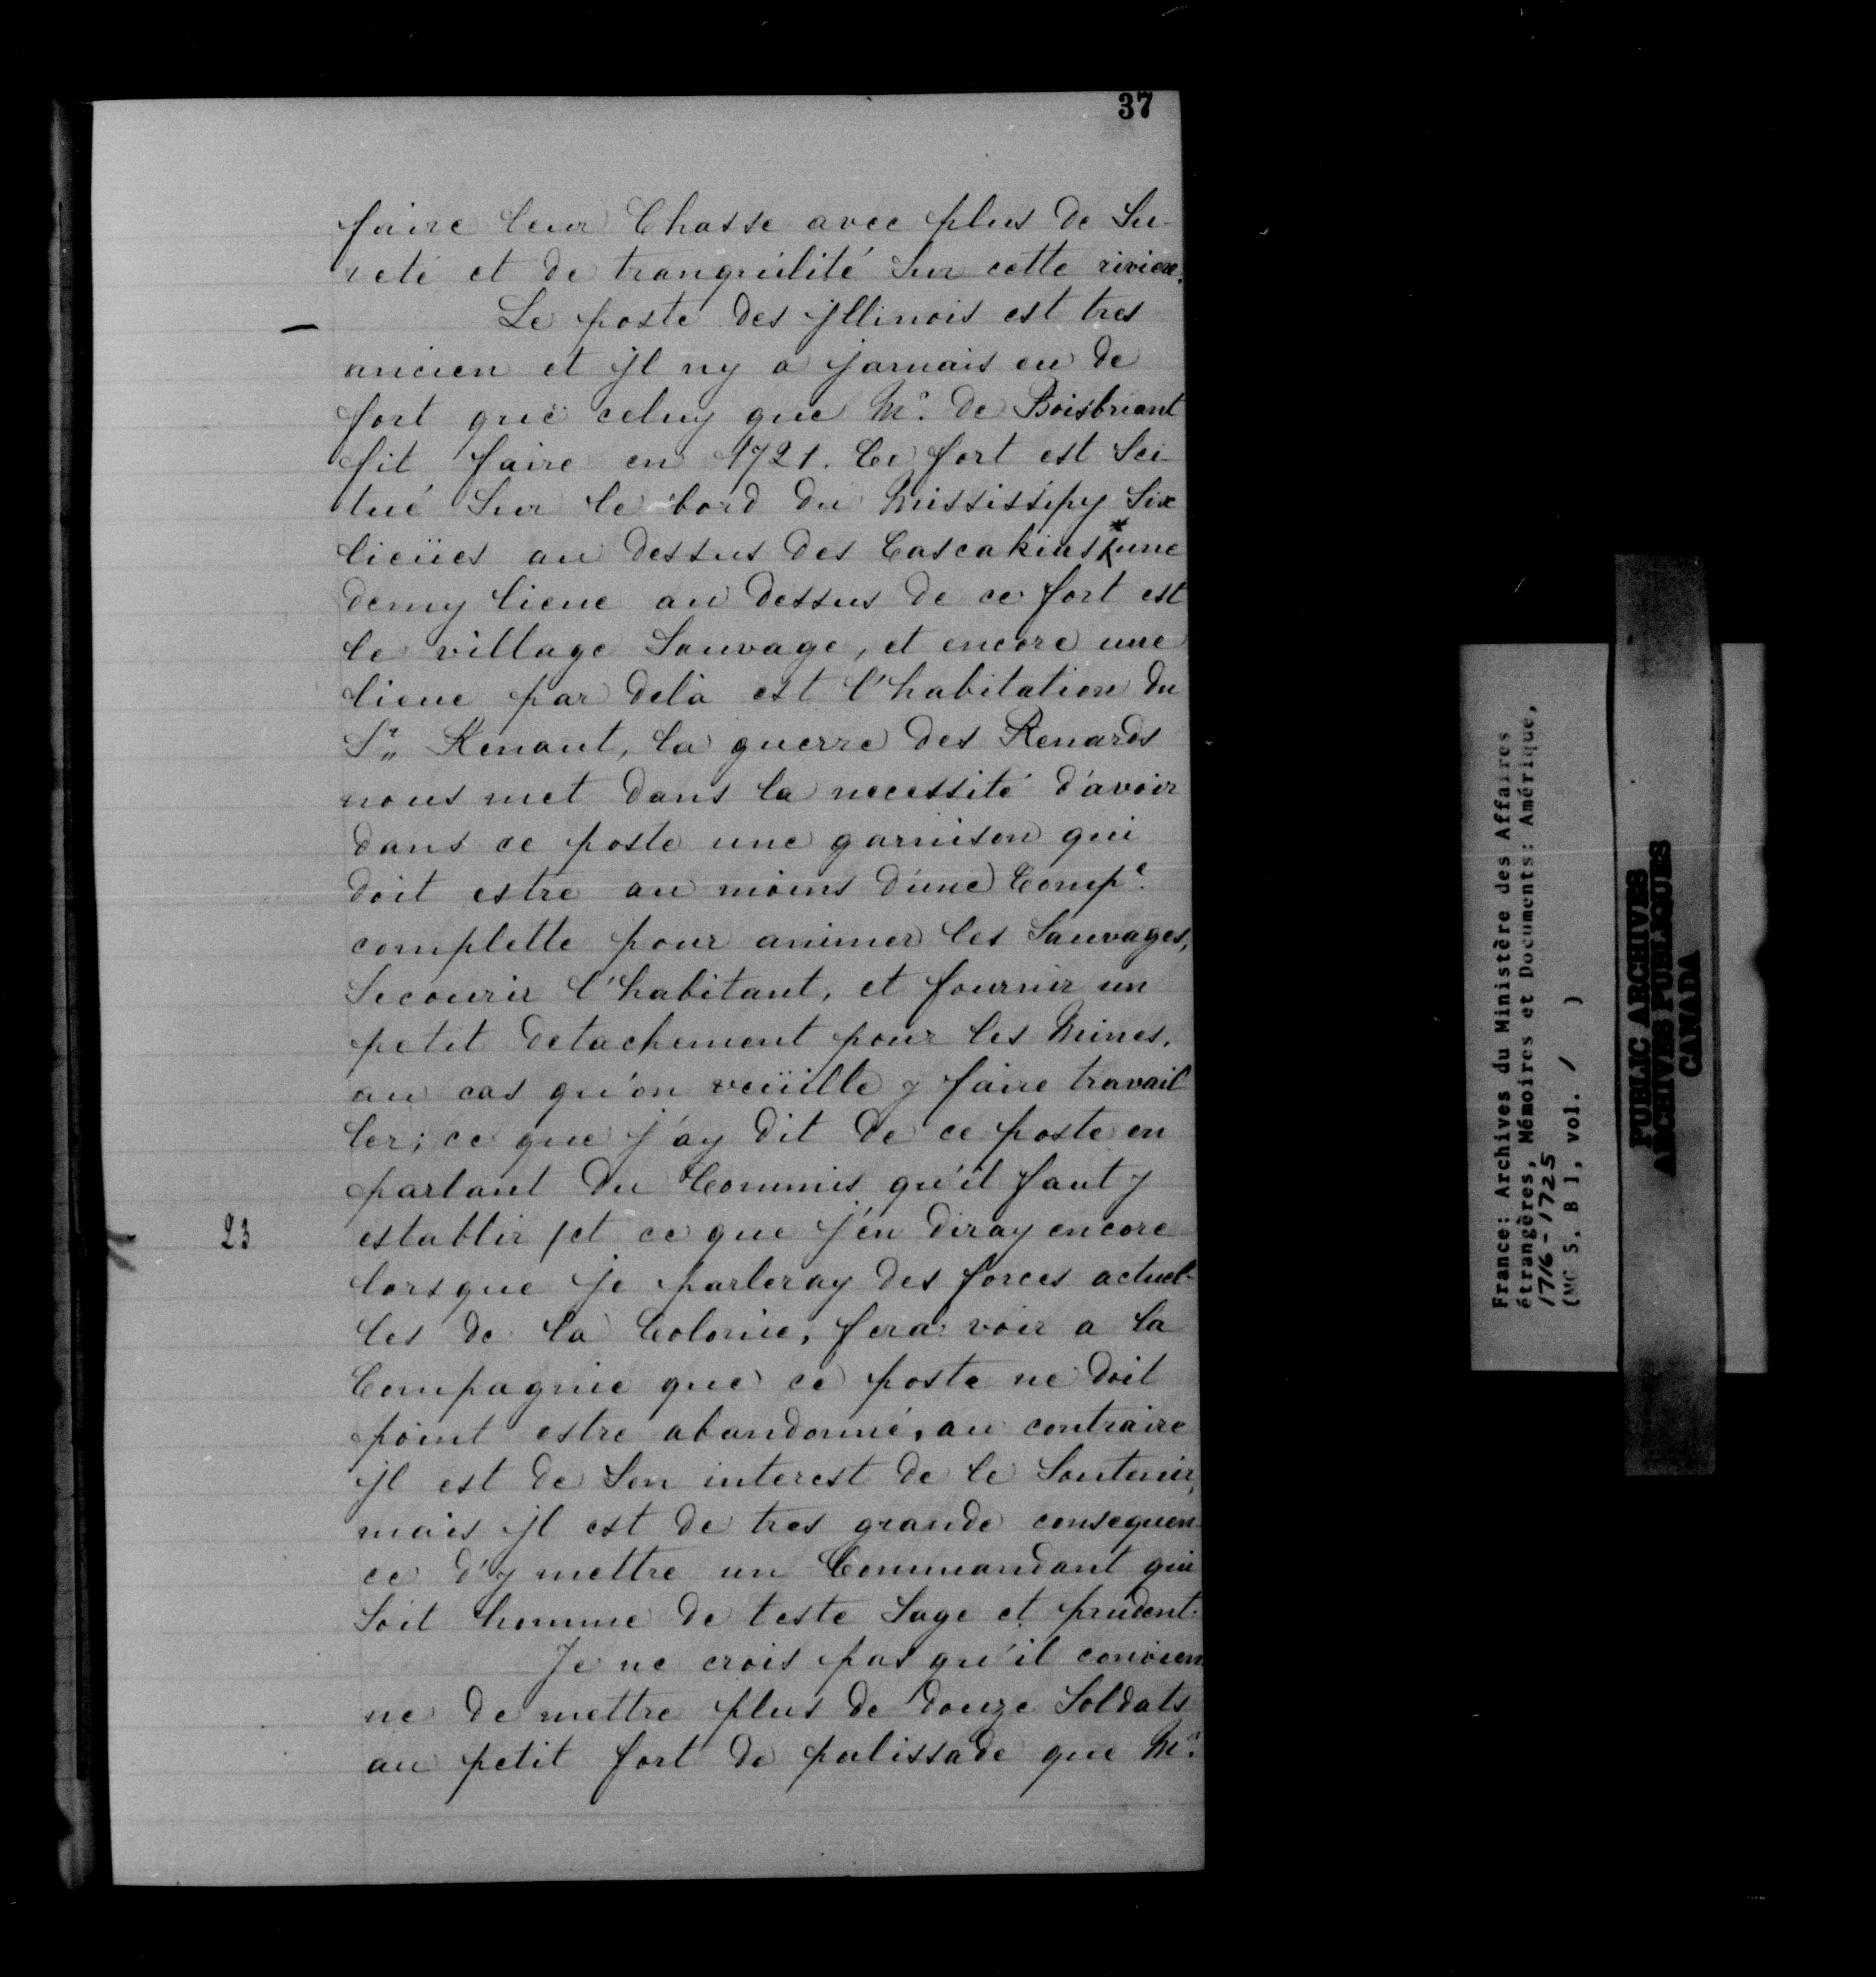 37
faire leur Chasse avec plus de Su-
reté et de tranquilité Sur cette riviere.
Le poste des jllinois est tres
ancien et jl ny a jamais eu de
fort que celuy que Mr. de Boisbriant
fit faire en 1721. Ce fort est Sci-
tué Sur le bord du Mississipy Six
lieües au dessus des Cascakias * une
demy lieue au dessus de ce fort est
le village Sauvage, et encore une
lieue par delà est l'habitation du
Sr. Renaut, la guerre des Renards
nous met dans la necessité d'avoir
dans ce poste une garnison qui
doit estre au moins d'une Compe.
complette pour animer les Sauvages,
Secourir l'habitant, et fournir un
petit detachement pour les Mines,
au cas qu'on veüille y faire travail
ler; ce que j'ay dit de ce poste en
parlant du Commis qu'il faut y
23 establir / et ce que j'en diray encore
lorsque je parleray des forces actuel-
les de la Colonie, fera voir a la
Compagnie que ce poste ne doit
point estre abandonné, au contraire
jl est de Son interest de le Soutenir,
mais jl est de tres grande consequen-
ce d'y mettre un Commandant qui
Soit homme de teste Sage et prudent.
Je ne crois pas qu'il convien
ne de mettre plus de douze Soldats
au petit fort de palissade que Mr.
France: Archives du Ministère des Affaires
étrangères, Mémoires et Documents: Amérique,
1716-1725
(MG 5, B 1, vol. 1 )
PUBLIC ARCHIVES
ARCHIVES PUBLIQUES
CANADA